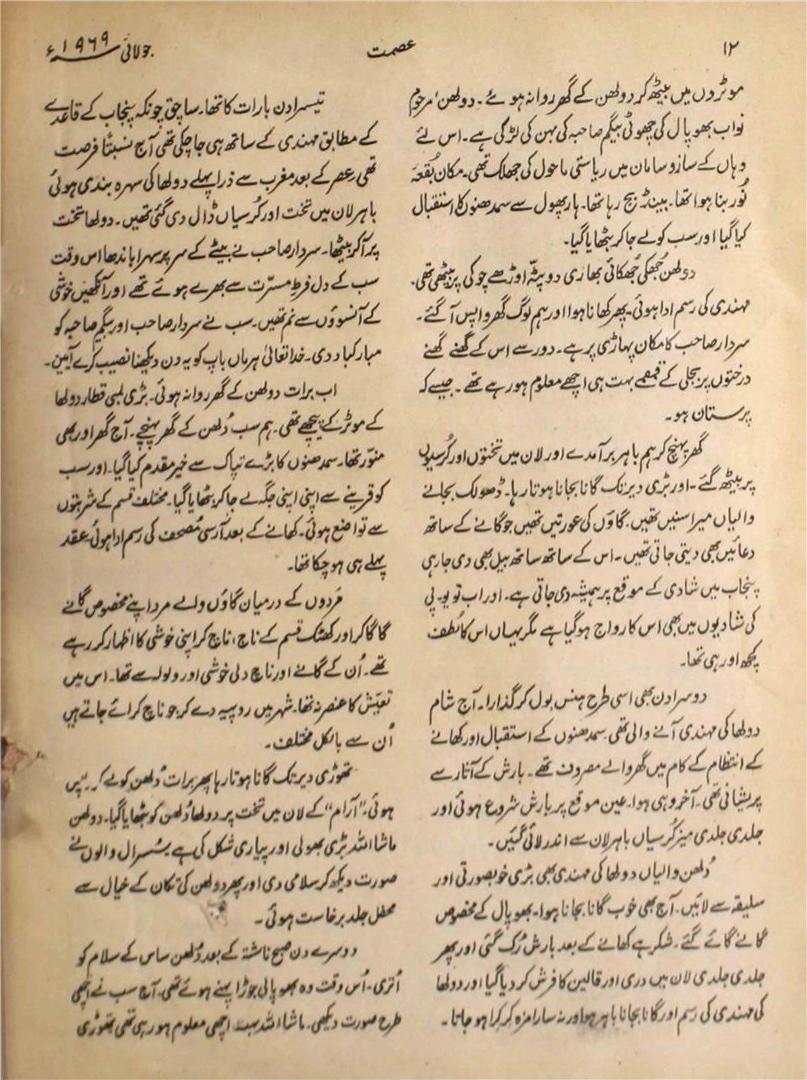 ۱۲
عصمت
جولائی ۱۹۶۹ء
موٹروں میں بیٹھ کر دولھن کے گھر روانہ ہوئے۔ دولھن، مرحوم
نواب بھوپال کی چھوٹی بیگم صاحبہ کی بہن کی لڑکی ہے۔ اس لئے
وہاں کے ساز و سامان میں ریاستی ماحول کی جھلک تھی۔ مکان بُقعہ
نُور بنا ہوا تھا۔ بینڈ بج رہا تھا۔ ہار پھول سے سمدھنوں کا استقبال
کیا گیا اور سب کو لے جا کر بٹھایا گیا۔
دولھن جُھکی جُھکائی بھاری دوپٹہ اوڑھے چوکی پر بیٹھی تھی۔
مہندی کی رسم ادا ہوئی۔ پھر کھانا ہوا اور ہم لوگ گھر واپس آ گئے۔
سردار صاحب کا مکان پہاڑی پر ہے۔ دور سے اس کے گھنے گھنے
درختوں پر بجلی کے قمقمے بہت ہی اچھے معلوم ہو رہے تھے۔ جیسے کہ
پرستان ہو۔
گھر پہنچ کر ہم باہر برآمدے اور لان میں تختوں اور کُرسیوں
پر بیٹھ گئے۔ اور بڑی دیر تک گانا بجانا ہوتا رہا۔ ڈھولک بجانے
والیاں میراسنیں تھیں۔ گاؤں کی عورتیں تھیں جو گانے کے ساتھ
دعائیں بھی دیتی جاتی تھیں۔ اس کے ساتھ ساتھ بیل بھی دی جا رہی
پنجاب میں شادی کے موقع پر ہمیشہ دی جاتی ہے۔ اور اب تو یو۔ پی
کی شادیوں میں بھی اس کا رواج ہو گیا ہے مگر یہاں اس کا لُطف
کچھ اور ہی تھا۔
دوسرا دن بھی اسی طرح ہنس بول کر گذارا۔ آج شام
دولھا کی مہندی آنے والی تھی۔ سمدھنوں کے استقبال اور کھانے
کے انتظام کے کام میں گھر والے مصروف تھے۔ بارش کے آثار سے
پریشانی تھی۔ آخر وہی ہوا۔ عین موقع پر بارش شروع ہوئی اور
جلدی جلدی میز کُرسیاں باہر لان سے اندر لائی گئیں۔
دُلھن والیاں دولھا کی مہندی بھی بڑی خوبصورتی اور
سلیقہ سے لائیں۔ آج بھی خوب گانا بجانا ہوا۔ بھوپال کے مخصوص
گانے گائے گئے۔ شکر ہے کھانے کے بعد بارش رُک گئی اور پھر
جلدی جلدی لان میں دری اور قالین کا فرش کر دیا گیا اور دولھا
کی مہندی کی رسم اور گانا بجانا باہر ہوا ورنہ سارا مزہ کرکرا ہو جاتا۔
تیسرا دن بارات کا تھا۔ ساچق چونکہ پنجاب کے قاعدے
کے مطابق مہندی کے ساتھ ہی جا چکی تھی آج نسبتًا فرصت
تھی۔ عصر کے بعد مغرب سے ذرا پہلے دولھا کی سہرہ بندی ہوئی
باہر لان میں تخت اور کُرسیاں ڈال دی گئی تھیں۔ دولھا تخت
پر آ کر بیٹھا۔ سردار صاحب نے بیٹے کے سر پر سہرا باندھا اس وقت
سب کے دل فرطِ مسرّت سے بھرے ہوئے تھے اور آنکھیں خوشی
کے آنسوؤں سے نم تھیں۔ سب نے سردار صاحب اور بیگم صاحبہ کو
مبارکباد دی۔ خدا تعالیٰ ہر ماں باپ کو یہ دن دیکھنا نصیب کرے آمین۔
اب برات دولھن کے گھر روانہ ہوئی۔ بڑی لمبی قطار دولھا
کے موٹر کے پیچھے تھی۔ ہم سب دُلھن کے گھر پہنچے۔ آج گھر اور بھی
منوّر تھا۔ سمدھنوں کا بڑے تپاک سے خیر مقدم کیا گیا۔ اور سب
کو قرینے سے اپنی اپنی جگہ لے جا کر بٹھایا گیا۔ مختلف قسم کے شربتوں
سے تواضع ہوئی۔ کھانے کے بعد آرسی مُصحف کی رسم ادا ہوئی۔ عقد
پہلے ہی ہو چکا تھا۔
مَردوں کے درمیان گاؤں والے مرد اپنے مخصوص گانے
گا گا کر اور کھٹک قسم کے ناچ، ناچ کر اپنی خوشی کا اظہار کر رہے
تھے۔ اُن کے گانے اور ناچ دلی خوشی اور ولولے سے تھا۔ اس میں
تعیّش کا عنصر نہ تھا۔ شہر میں روپیہ دے کر جو ناچ کرائے جاتے ہیں
اُن سے بالکل مختلف۔
تھوڑی دیر تک گانا ہوتا رہا پھر برات دُلھن کو لے کر واپس
ہوئی۔ "آرام" کے لان میں تخت پر دولھا دُلھن کو بٹھایا گیا۔ دولھن
ماشا اللہ بڑی بھولی اور پیاری شکل کی ہے سُسرال والوں نے
صورت دیکھ کر سلامی دی اور پھر دولھن کی تکان کے خیال سے
محفل جلد برخاست ہوئی۔
دوسرے دن صبح ناشتہ کے بعد دُلھن ساس کے سلام کو
اُتری۔ اُس وقت وہ بھوپالی جوڑا پہنے ہوئے تھی۔ آج سب نے اچھی
طرح صورت دیکھی۔ ماشا اللہ بہت اچھی معلوم ہو رہی تھی تھوڑی